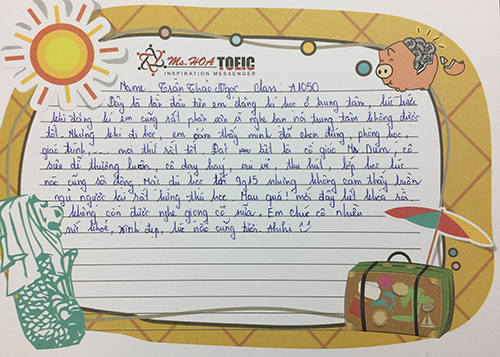 Ms.HOA TOEIC
INSPIRATION MESSENGER
Name: Trần Thảo Ngọc Class: A1050
Đây là lần đầu tiên em đăng kí học ở trung tâm, lúc trước
khi đăng kí em cũng rất phân vân vì nghe bạn nói trung tâm không được
tốt. Nhưng khi đi học em cảm thấy mình đã chọn đúng, phòng học,
giáo trình,.... mọi thứ rất tốt. Đặc biệt là cô giáo Ms. Duẩn, cô
siêu dễ thương luôn, cô dạy hay, vui vẻ, thu hút, lớp học lúc
nào cũng sôi động. Mặc dù học tới 9g15 nhưng không cảm thấy buồn
ngủ ngược lại rất hứng thú học. Mau quá! mới đây hết khóa rồi
không còn được nghe giọng cô nữa. Em chúc cô nhiều
sức khoẻ, xinh đẹp, lúc nào cũng teen. Ahihi ^^